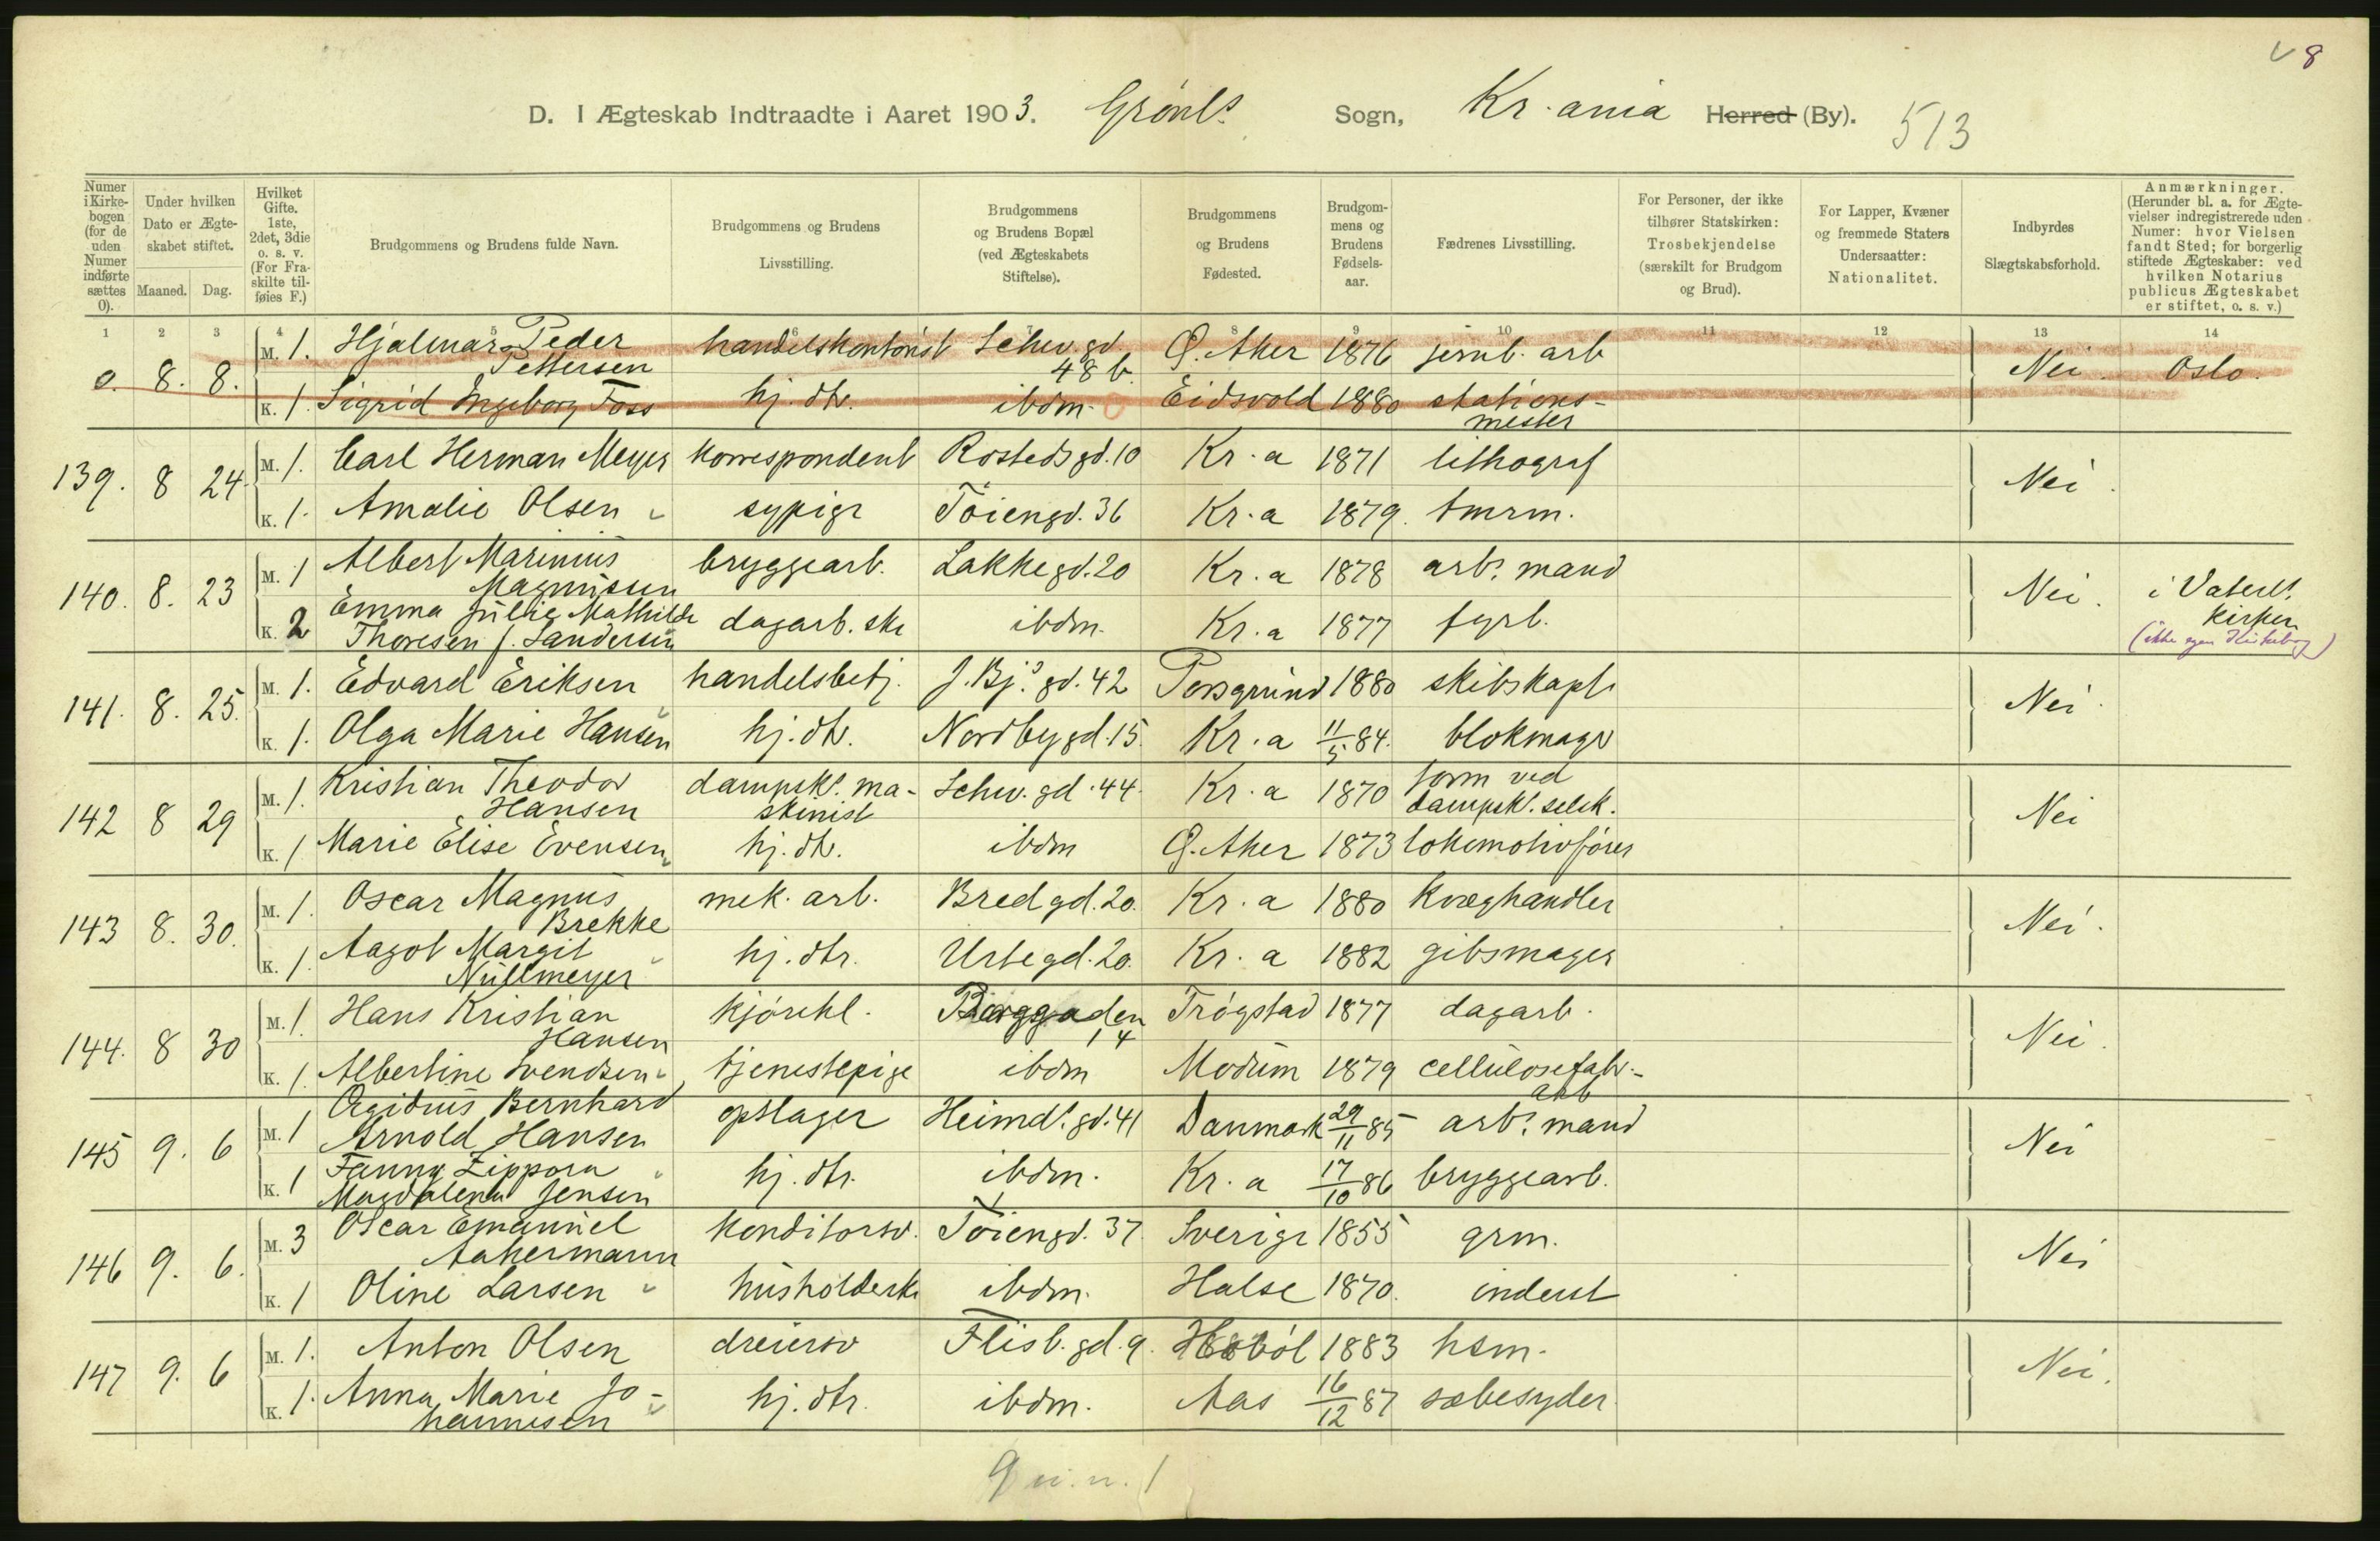 8
D. I Ægteskab Indtraadte i Aaret 1903. Grönls Sogn, Kr.ania Herred (By). 513
Numer i Kirkebogen (for de uden Numer indførte sættes 0).
Under hvilken Dato er Ægteskabet stiftet.
Maaned. Dag.
Hvilket Gifte. 1ste, 2det, 3die o. s. v. (For Fraskilte tilføies F.)
Brudgommens og Brudens fulde Navn.
Brudgommens og Brudens Livsstilling.
Brudgommens og Brudens Bopæl (ved Ægteskabets Stiftelse).
Brudgommens og Brudens Fødested.
Brudgommens og Brudens Fødselsaar.
Fædrenes Livsstilling.
For Personer, der ikke tilhører Statskirken: Trosbekjendelse (særskilt for Brudgom og Brud).
For Lapper, Kvæner og fremmede Staters Undersaatter: Nationalitet.
Indbyrdes Slægtskabsforhold.
Anmærkninger. (Herunder bl. a. for Ægtevielser indregistrerede uden Numer: hvor Vielsen fandt Sted; for borgerlig stiftede Ægteskaber: ved hvilken Notarius publicus Ægteskabet er stiftet, o. s. v.)
1 2 3 4 5 6 7 8 9 10 11 12 13 14
0. 8. 8. M. 1. Hjalmar Peder Pettersen handelskontorist Schw. gd. 48 b. Ö. Aker 1876 jernb. arb Nei. Oslo.
K. 1. Sigrid Ingeborg Foss hj. dtr. ibdm. Eidsvold 1880 stationsmester
139. 8 24. M. 1. Carl Herman Meyer korrespondent Rosteds gd. 10 Kr.a 1871 lithograf Nei.
K. 1. Amalie Olsen sypige Töiengd. 36 Kr.a 1879. tmrm.
140. 8. 23 M. 1 Albert Marinius Magnussen bryggearb. Lakkegd. 20 Kr.a 1878 arbs mand Nei. i Vaterls kirken
K. 2 Emma Julie Mathilde Thoresen f. Sandersen dagarb. ske ibdm. Kr.a 1877 fyrb. (ikke egen Kirkebog)
141. 8. 25. M. 1. Edvard Eriksen handelsbetj. J. Bj.s gd. 42 Porsgrund 1880 skibskapt. Nei.
K. 1. Olga Marie Hansen hj. dtr. Nordbygd. 15. Kr.a 11/5 84. blokmagr
142 8 29 M. 1. Kristian Theodor Hansen dampsks. maskinist Schw. gd. 44. Kr.a 1870 form ved dampsks. selsk. Nei
K. 1 Marie Elise Evensen hj. dtr. ibdm Ö. Aker 1873 lokomotivförer
143 8. 30. M. 1. Oscar Magnus Brekke mek. arb. Bredgd. 20. Kr.a 1880 kvæghandler Nei.
K. 1. Aagot Margit Nullmeyer hj. dtr. Urtegd. 20. Kr.a 1882 gibsmager
144. 8 30 M. 1. Hans Kristian Hansen kjörekl. Borggaden 14 Trögstad 1877 dagarb. Nei.
K. 1. Albertine Svendsen tjenestepige ibdm Modum 1879 cellulosefabr.- arb
145 9. 6 M. 1 Ægidius Bernhard Arnold Hansen opstager Heimds. gd. 41 Danmark 29/11 85 arbs mand Nei
K. 1 Fanny Zippora Magdalena Jensen hj. dtr. ibdm. Kr.a 17/10 86 bryggearb.
146 9. 6. M. 3 Oscar Emanuel Aakermann konditorsv. Töiengd. 37. Sverige 1855 grm. Nei
K. 1 Oline Larsen husholderske ibdm. Halse 1870. inderst
147 9. 6 M. 1. Anton Olsen dreiersv Flisb. gd. 9. Hoböl 1883 hsm. Nei.
K. 1. Anna Marie Johannesen hj. dtr. ibdm. Aas 16/12 87 sæbesyder